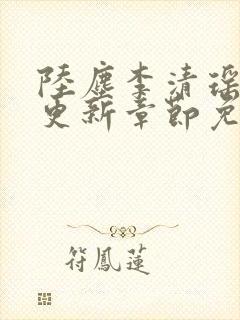 陸塵李清瑶
更新章節免
符鳳蓮